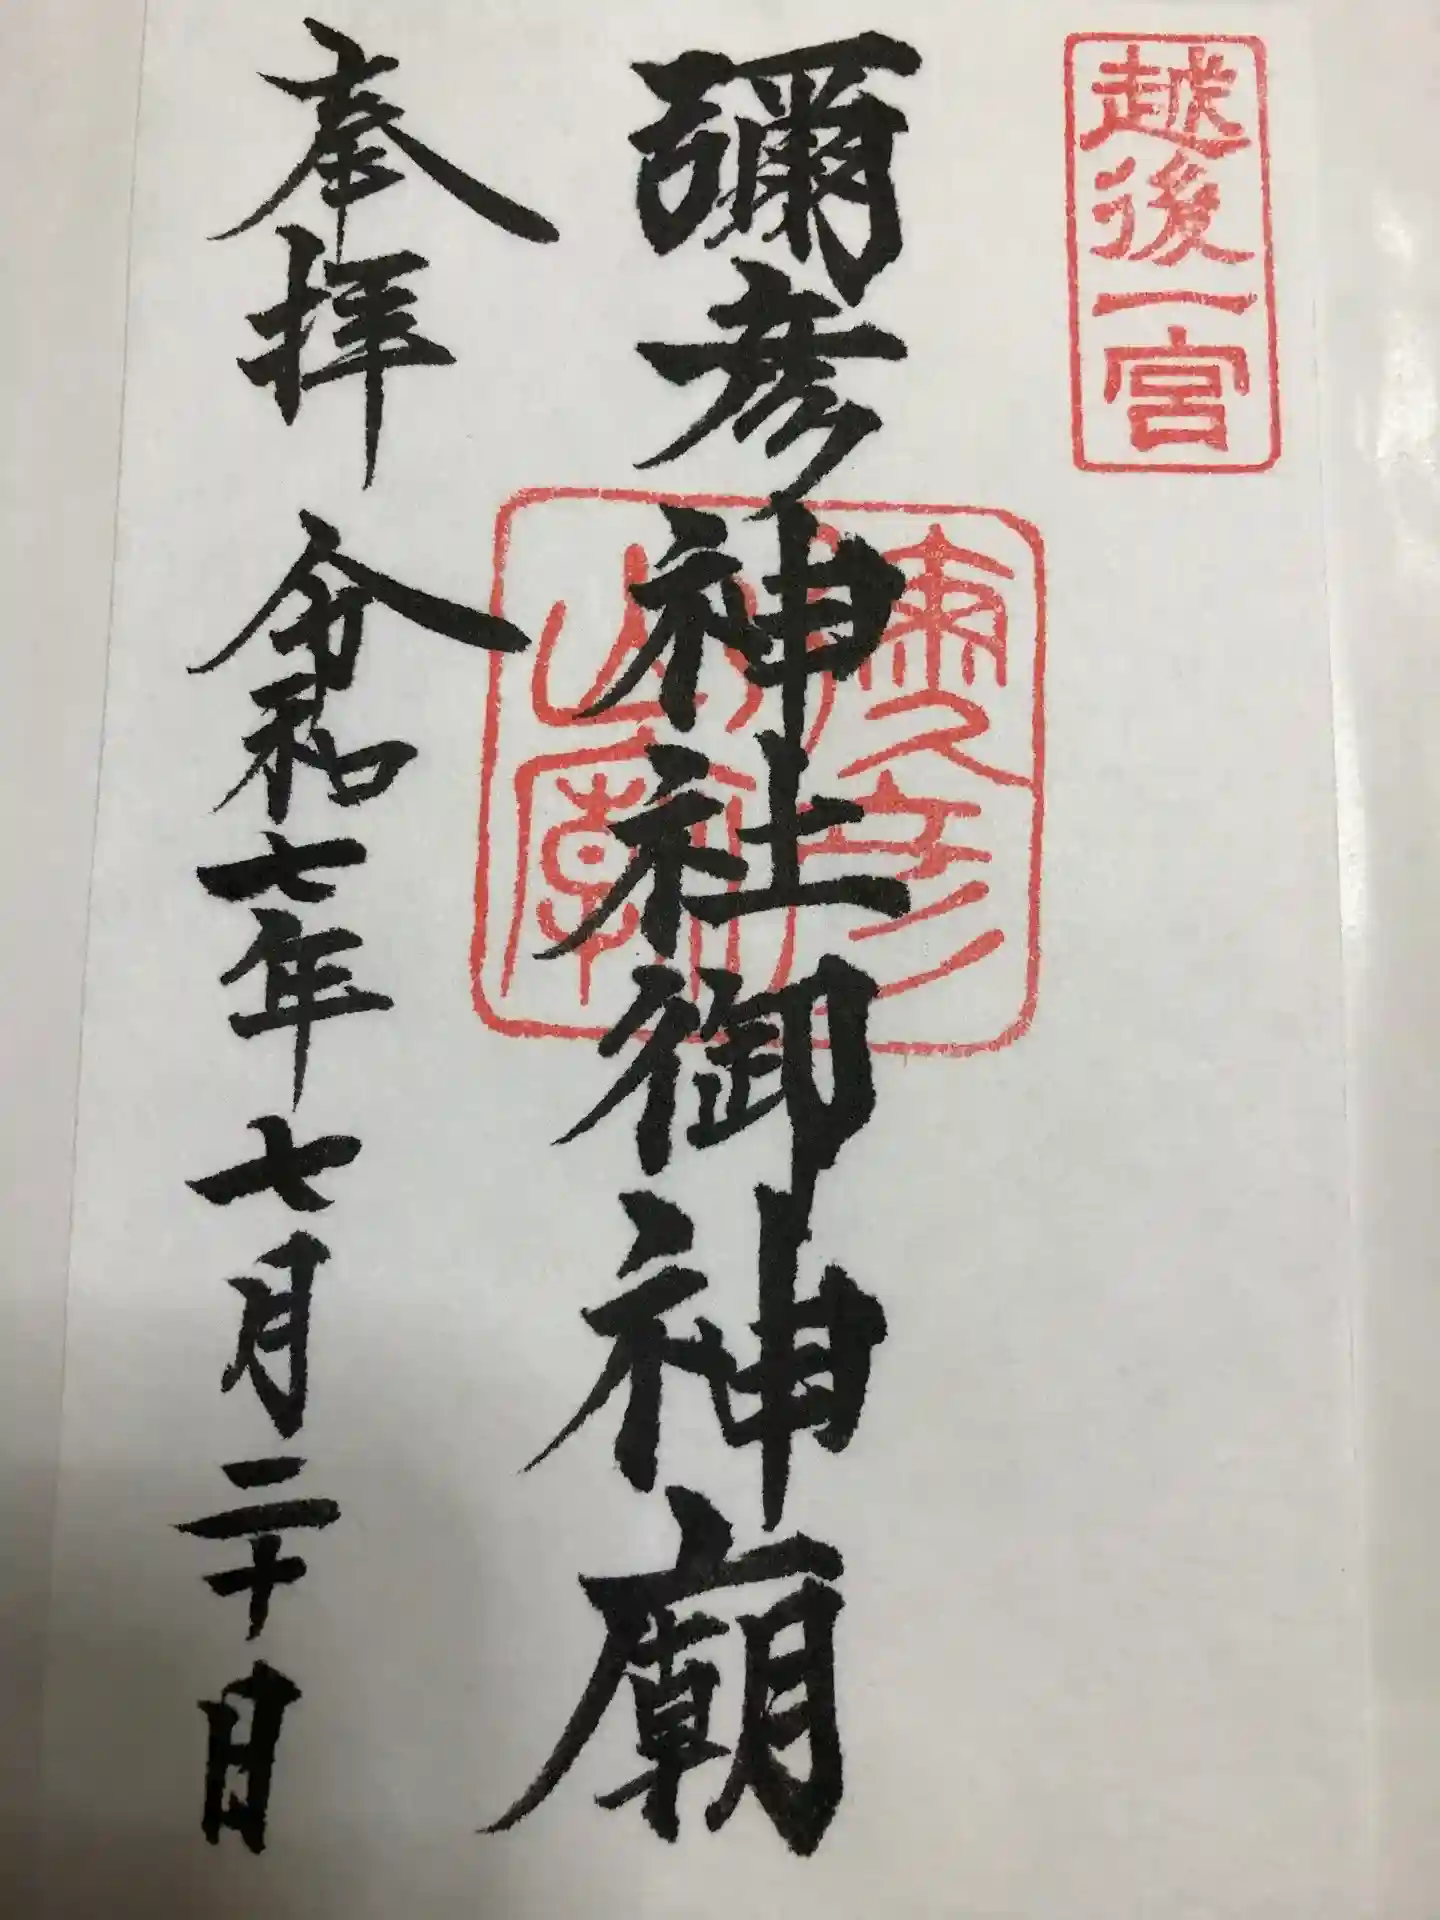 越後一宮
彌彦神社御神廟
奉拝 令和七年七月二十日